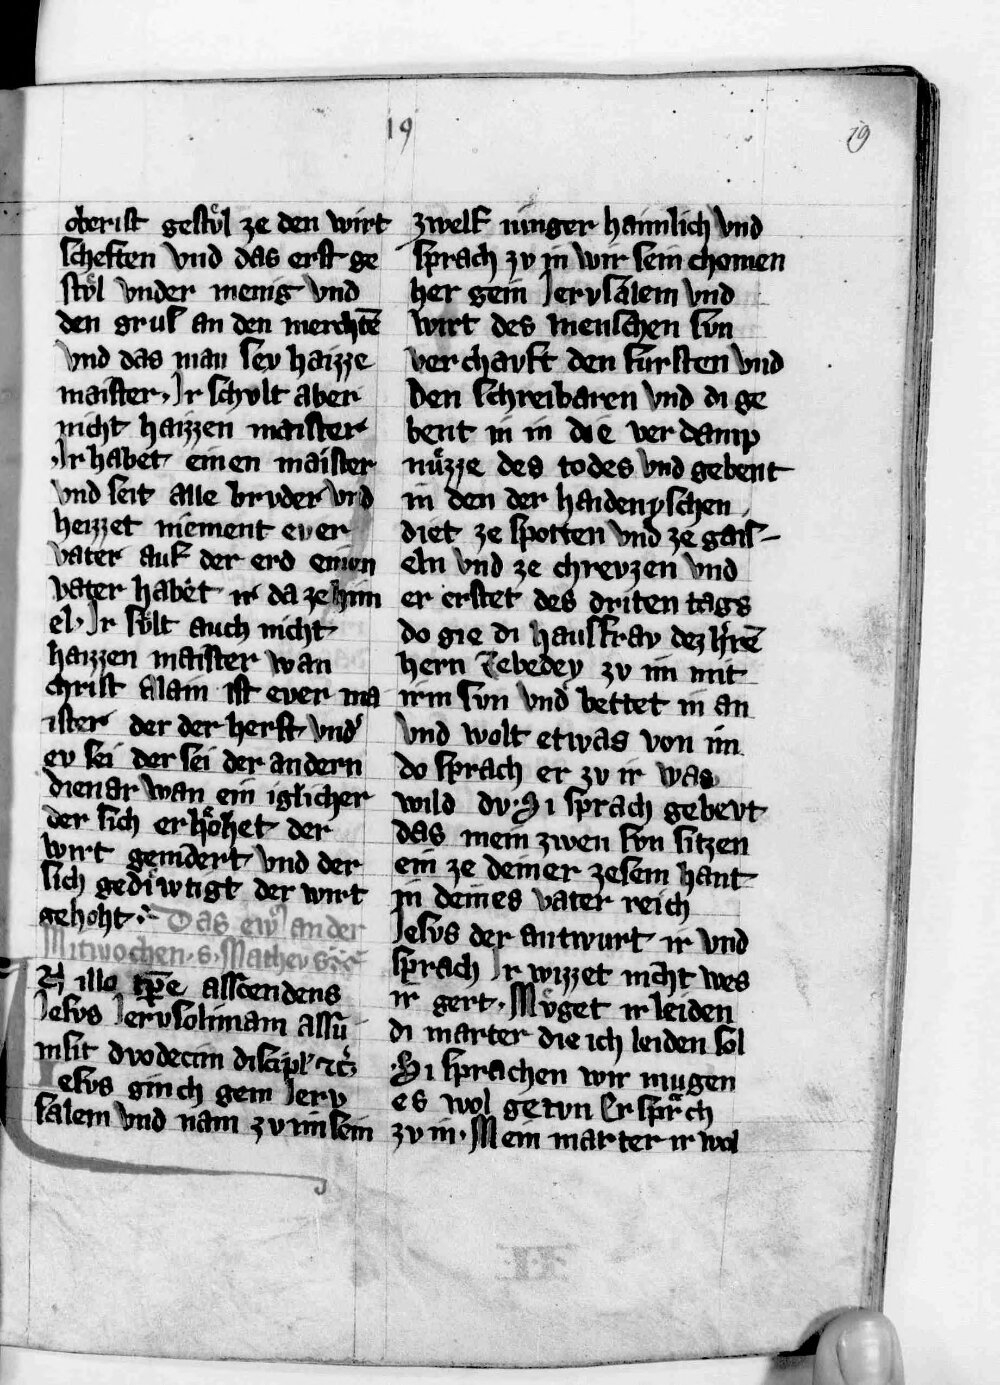 19
19
oberist gestuͤl ze den wirt
scheften vnd das erst ge
stuͤl vnder menig vnd
den gruſ an den merchtē
vnd das man sev haizze
maister. Ir schvlt aber
nicht haizzen maister
Ir habet einen maister
vnd seit alle brvder vnd
heizzet niement ever
vater auf der erd einen
vater habet ir da ze him
el. Ir suͤlt auch nicht
haizzen maister wan
christ alain ist ever ma
ister der der herst vnd'
ev sei der sei der andern
dienar wan ein iglicher
der sich erhoͤhet der
wirt genidert vnd der
sich gediwtigt der wirt
gehoht. Das ew̄ an der
Mitwochen. s. Mathevs
In illo tp̄e asscendens
Jesvs Jervsolimam assu
msit dvodecim discipl' ⁊c̄
Jesvs ginch gein Jerv
salem vnd nam zv im sein
zwelf iunger haimlich vnd
sprach zv in wir sein chomen
her gein Jervsalem vnd
wirt des menschen svn
verchavft den fursten vnd
den schreibaren vnd di ge
bent in in die verdamp
nuͤzze des todes vnd gebent
in den der haidenyschen
diet ze spotten vnd ze gais-
eln vnd ze chrevzen vnd
er erstet des driten tags
do gie di hausfrav dez h'rē
hern Zebedey zv im mit
irm svn vnd bettet in an
vnd wolt etwas von im
do sprach er zv ir was
wild dv. Si sprach gebevt
das mein zwen svn sitzen
ein ze deiner zesem hant
in deines vater reich
Jesvs der antwurt ir vnd
sprach Ir wizzet nicht wes
ir gert. Muͤget ir leiden
di marter die ich leiden sol
Si sprachen wir mugen
es wol getvn Er sprach
zv in. Mein marter ir wol